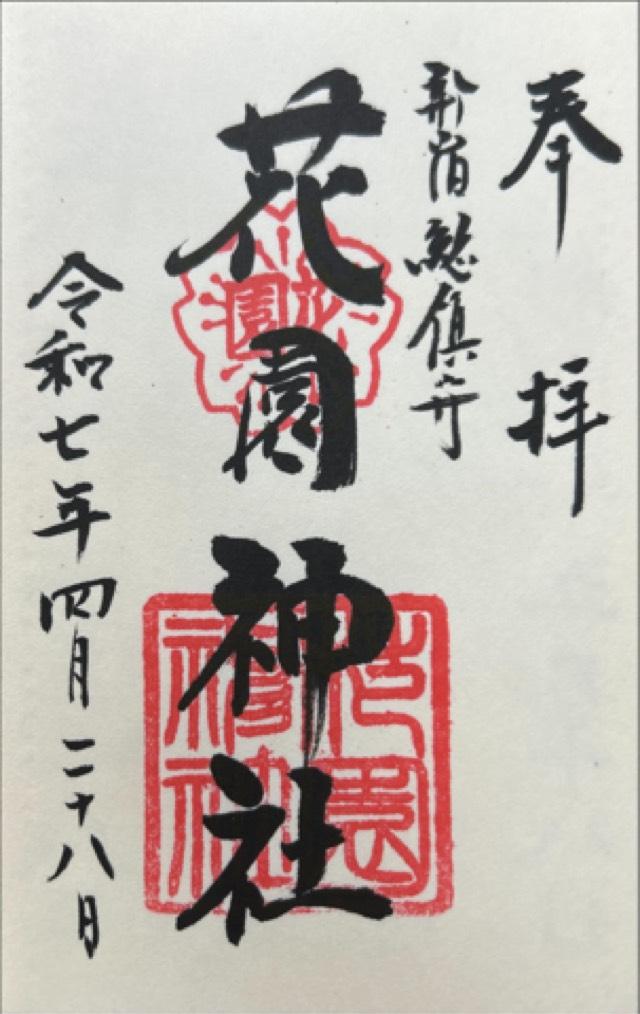 奉拝
新宿総鎮守
花園神社
令和七年四月二十八日
花園
花園神社